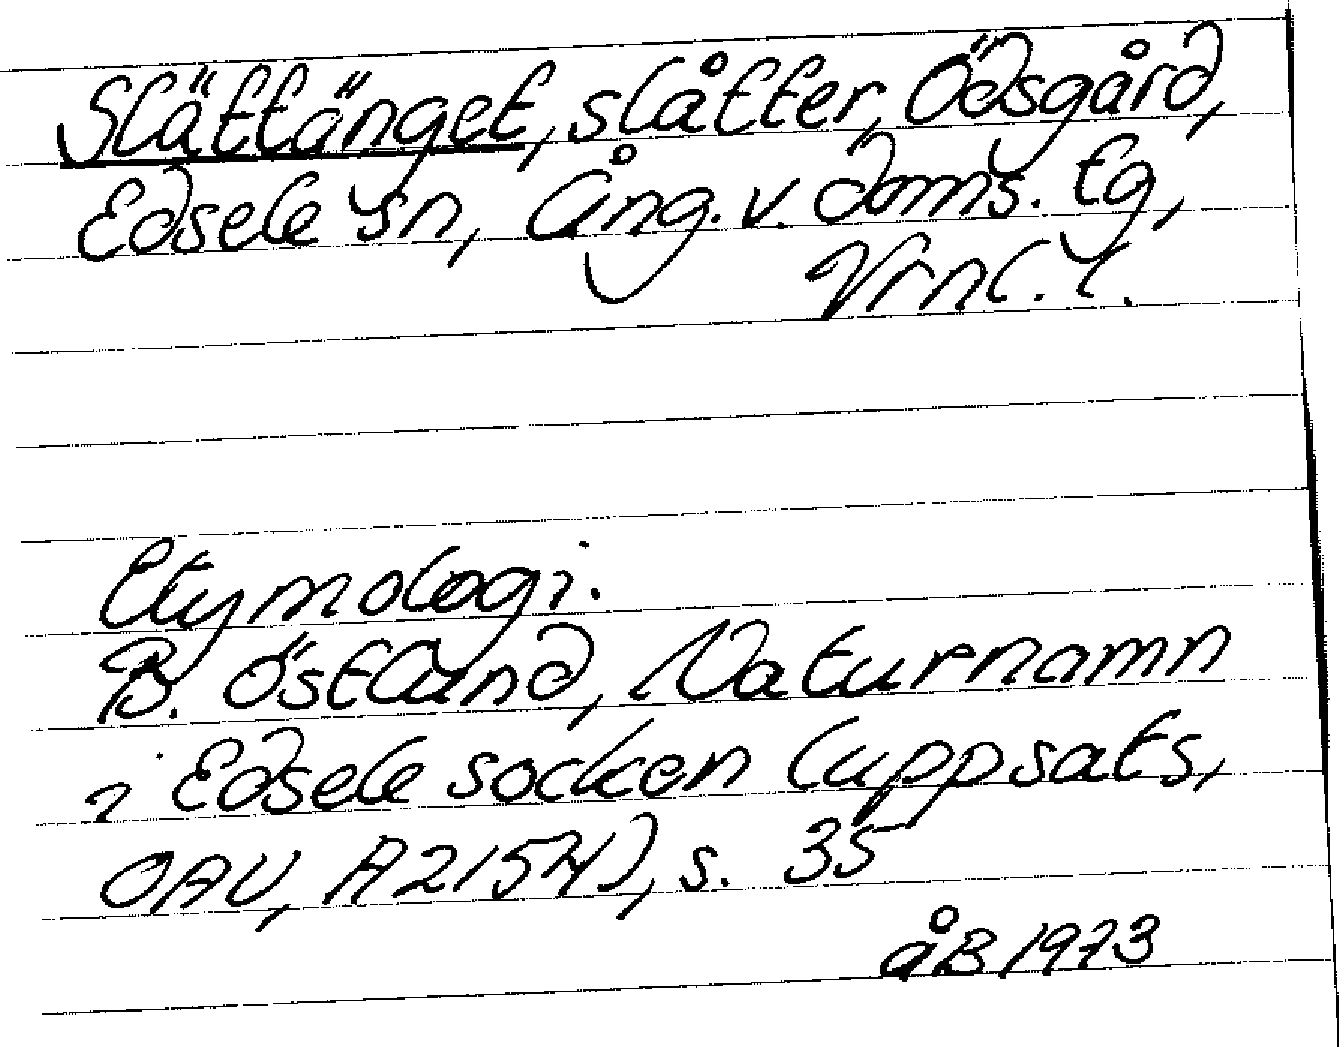 Slättänget, slåtter, Ödsgård,
Edsele sn, Ång. v. doms. tg,
Vrnl. l.
Etymologi:
B. Östlund, Naturnamn
i Edsele socken (uppsats,
OAU, A2154), s. 35
åB 1973